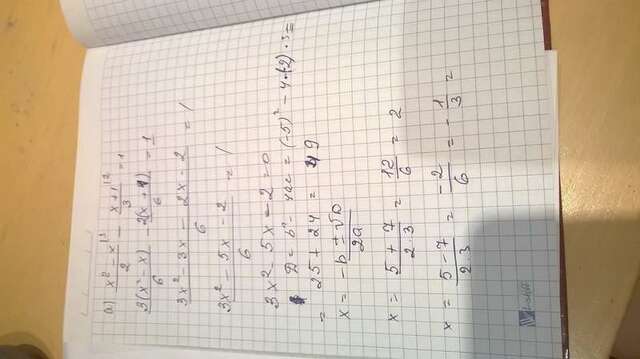 a) x² - x|³ / 2 - x+1|² / 3 = 1
3(x² - x) / 6 - 2(x + 1) / 6 = 1
3x² - 3x - 2x - 2 / 6 = 1
3x² - 5x - 2 / 6 = 1
3x² - 5x - 2 = 0
D = b² - 4ac = (-5)² - 4·(-2)·3 =
= 25 + 24 = 49
x = -b ± √D / 2a
x = 5 + 7 / 2·3 = 12 / 6 = 2
x = 5 - 7 / 2·3 = -2 / 6 = - 1 / 3 =